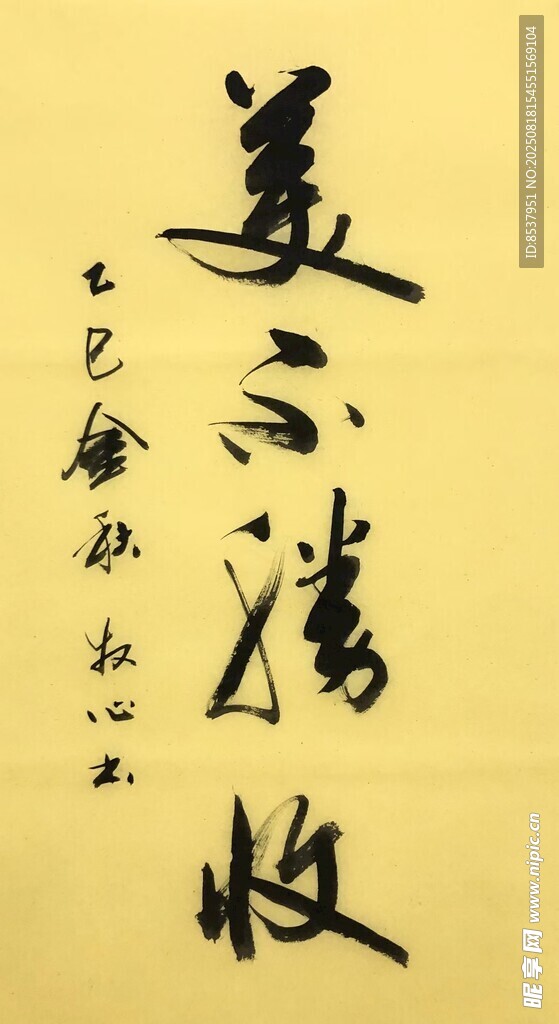 美不勝收
乙巳金秋 牧心书
ID:8537951 NO:20250818154551569104
昵享网 www.nipic.cn